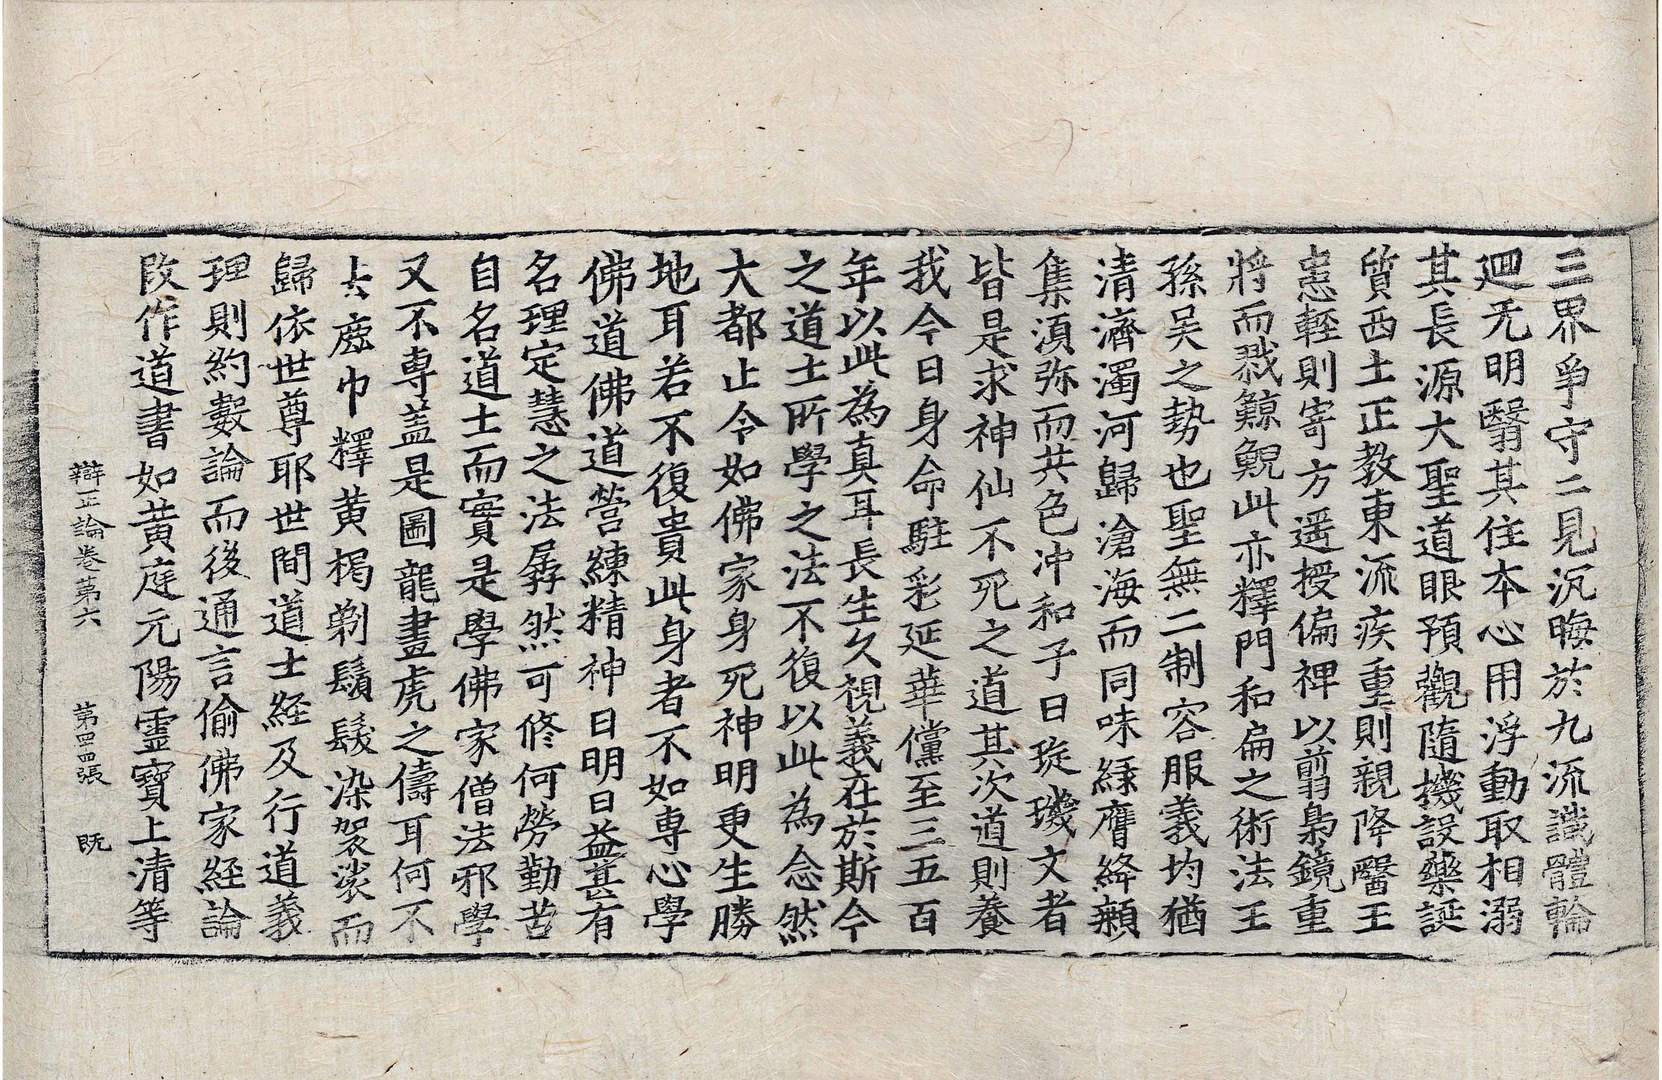 三界爭守二見沉晦於九流識體輪
廻旡明翳其住本心用浮動取相溺
其長源大聖道眼預觀隨機設藥誕
質西土正教東流疾重則親降醫王
恚輊則寄方遥授偏裨以翦梟鏡重
將而戮鯨鯢此亦釋門和扁之術法王
孫吴之㔟也聖無二制容服義均猶
清濟濁河歸滄海而同味緑膺絳顙
集湏弥而共色冲和子曰琁璣文者
皆是求神仙不死之道其次道則養
我今日身命駐彩延華儻至三五百
年以此為真耳長生久視義在於斯今
之道士所學之法不復以此為念然
大都止令如佛家身死神明更生勝
地耳若不復貴此身者不如専心學
佛道佛道營練精神日明日益甚有
名理定慧之法孱然可修何勞勤苦
自名道士而實是學佛家僧法邪學
又不専盖是圖龍畫虎之儔耳何不
去鹿巾釋黄褐剃鬚髮染袈裟而
歸依世尊耶世間道士経及行道義
理則約數論而後通言偷佛家経論
改作道書如黄庭元陽霊寳上清等
辯正論卷第六 第四四張 旣